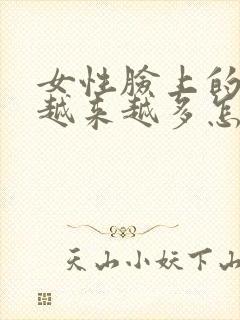 女性臉上的
越来越多怎
天山小妖下山